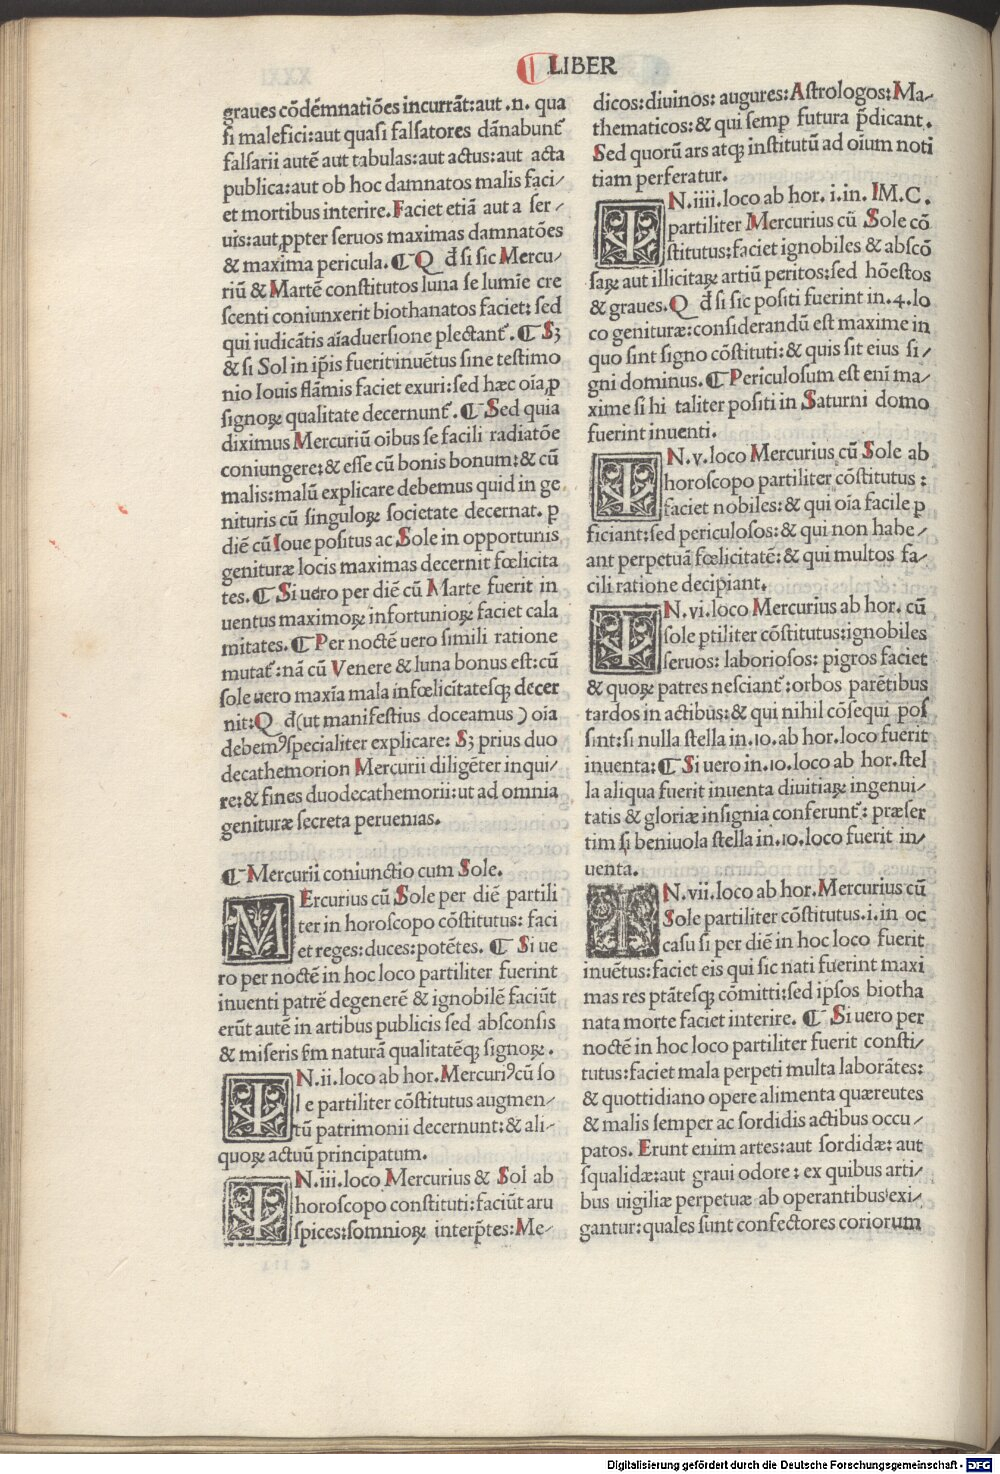 ¶ LIBER
graues cõdẽmnatiões incurrãt:aut .n. qua
si malefici:aut quasi falsatores dãnabunt᷑
falsarii autẽ aut tabulas:aut actus:aut acta
publica:aut ob hoc damnatos malis faci/
et mortibus interire. Faciet etiã aut a ser/
uis:aut ꝓpter seruos maximas damnatões
& maxima pericula. ¶ Q đ si sic Mercu/
riũ & Martẽ constitutos luna se lumĩe cre
scenti coniunxerit biothanatos faciet: sed
qui iudicãtis aĩaduersione plectant᷑. ¶ Sꝫ
& si Sol in ip̃is fuerit inuẽtus sine testimo
nio Iouis flãmis faciet exuri: sed hæc oĩa ꝓ
signoꝝ qualitate decernunt᷑. ¶ Sed quia
diximus Mercuriũ oĩbus se facili radiatõe
coniungere:& esse cũ bonis bonum:& cũ
malis:malũ explicare debemus quid in ge
nituris cũ singuloꝝ societate decernat. p
diẽ cũ Ioue positus ac Sole in opportunis
genituræ locis maximas decernit fœlicita
tes. ¶ Si uero per diẽ cũ Marte fuerit in
uentus maximoꝝ infortunioꝝ faciet cala
mitates. ¶ Per noctẽ uero simili ratione
mutat᷑:nã cũ Venere & luna bonus est:cũ
sole uero maxĩa mala infœlicitatesqꝫ decer
nit:Q đ (ut manifestius doceamus) oĩa
debemꝰ specialiter explicare: Sꝫ prius duo
decathemorion Mercurii diligẽter inqui/
re:& fines duodecathemorii:ut ad omnia
genituræ secreta peruenias.
¶ Mercurii coniunctio cum Sole.
MErcurius cũ Sole per diẽ partili
ter in horoscopo cõstitutus: faci
et reges:duces:potẽtes. ¶ Si ue
ro per noctẽ in hoc loco partiliter fuerint
inuenti patrẽ degenerẽ & ignobilẽ faciũt
erũt autẽ in artibus publicis sed absconsis
& miseris ẜm naturã qualitatẽqꝫ signoꝝ.
IN.ii.loco ab hor.Mercuriꝰ cũ so
l e partiliter cõstitutus augmen/
tũ patrimonii decernunt:& ali-
quoꝝ actuũ principatum.
IN.iii.loco Mercurius & Sol ab
horoscopo constituti:faciũt aru
spices:somnioꝝ interp̃tes:Me-
dicos:diuinos: augures:Astrologos:Ma-
thematicos:& qui semꝑ futura p̃dicant.
Sed quorũ ars atqꝫ institutũ ad oĩum noti
tiam perferatur.
IN.iiii.loco ab hor. i.in. IM.C.
partiliter Mercurius cũ Sole cõ
stitutus:faciet ignobiles & abscõ
saꝝ aut illicitaꝝ artiũ peritos:sed hõestos
& graues. Q đ si sic positi fuerint in.4.lo
co genituræ:considerandũ est maxime in
quo sint signo cõstituti:& quis sit eius si/
gni dominus. ¶ Periculosum est enĩ ma/
xime si hi taliter positi in Saturni domo
fuerint inuenti.
IN.v.loco Mercurius cũ Sole ab
horoscopo partiliter cõstitutus :
faciet nobiles:& qui oĩa facile p
ficiant:sed periculosos:& qui non habe/
ant perpetuã fœlicitatẽ:& qui multos fa/
cili ratione decipiant.
IN.vi.loco Mercurius ab hor. cũ
sole ꝑtiliter cõstitutus:ignobiles
seruos: laboriosos: pigros faciet
& quoꝝ patres nesciant᷑:orbos parẽtibus
tardos in actibus:& qui nihil cõsequi pos
sint:si nulla stella in.10.ab hor.loco fuerit
inuenta: ¶ Si uero in.10.loco ab hor.stel
la aliqua fuerit inuenta diuitiaꝝ ingenui/
tatis & gloriæ insignia conferunt᷑: præser
tim si beniuola stella in.10.loco fuerit in/
uenta.
IN.vii.loco ab hor.Mercurius cũ
Sole partiliter cõstitutus.i.in oc
casu si per diẽ in hoc loco fuerit
inuẽtus:faciet eis qui sic nati fuerint maxi
mas res ptãtesqꝫ cõmitti:sed ipsos biotha
nata morte faciet interire. ¶ Si uero per
noctẽ in hoc loco partiliter fuerit consti/
tutus:faciet mala perpeti multa laborãtes:
& quottidiano opere alimenta quæreutes
& malis semper ac sordidis actibus occu/
patos. Erunt enim artes:aut sordidæ: aut
squalidæ:aut graui odore: ex quibus arti/
bus uigiliæ perpetuæ ab operantibus exi/
gantur:quales sunt confectores coriorum
Digitalisierung gefördert durch die Deutsche Forschungsgemeinschaft - DFG